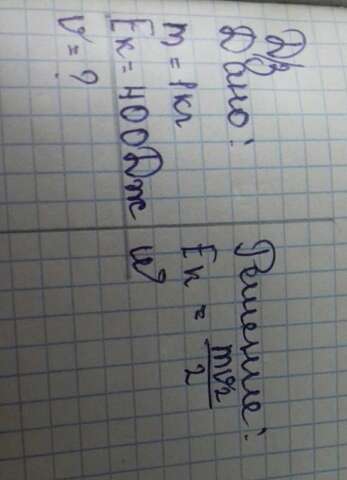 Д/з
Дано:
m = 1кг
Eк = 400Дж
v = ?
Решение:
Eк = mv²/2